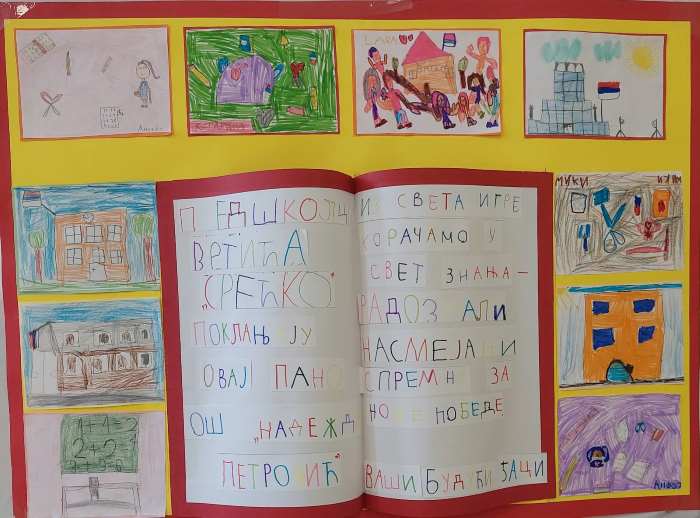 LARA
ПРЕДШКОЛЦИ
ВРТИЋА
„СРЕЋКО"
ПОКЛАЊАЈУ
ОВАЈ ПАНО
ОШ „НАДЕЖДА
ПЕТРОВИЋ"
ИЗ СВЕТА ИГРЕ
КОРАЧАМО У
СВЕТ ЗНАЊА –
РАДОЗНАЛИ
НАСМЕЈАНИ
СПРЕМНИ ЗА
НОВЕ ПОБЕДЕ
ВАШИ БУДУЋИ ЂАЦИ
1+1=2